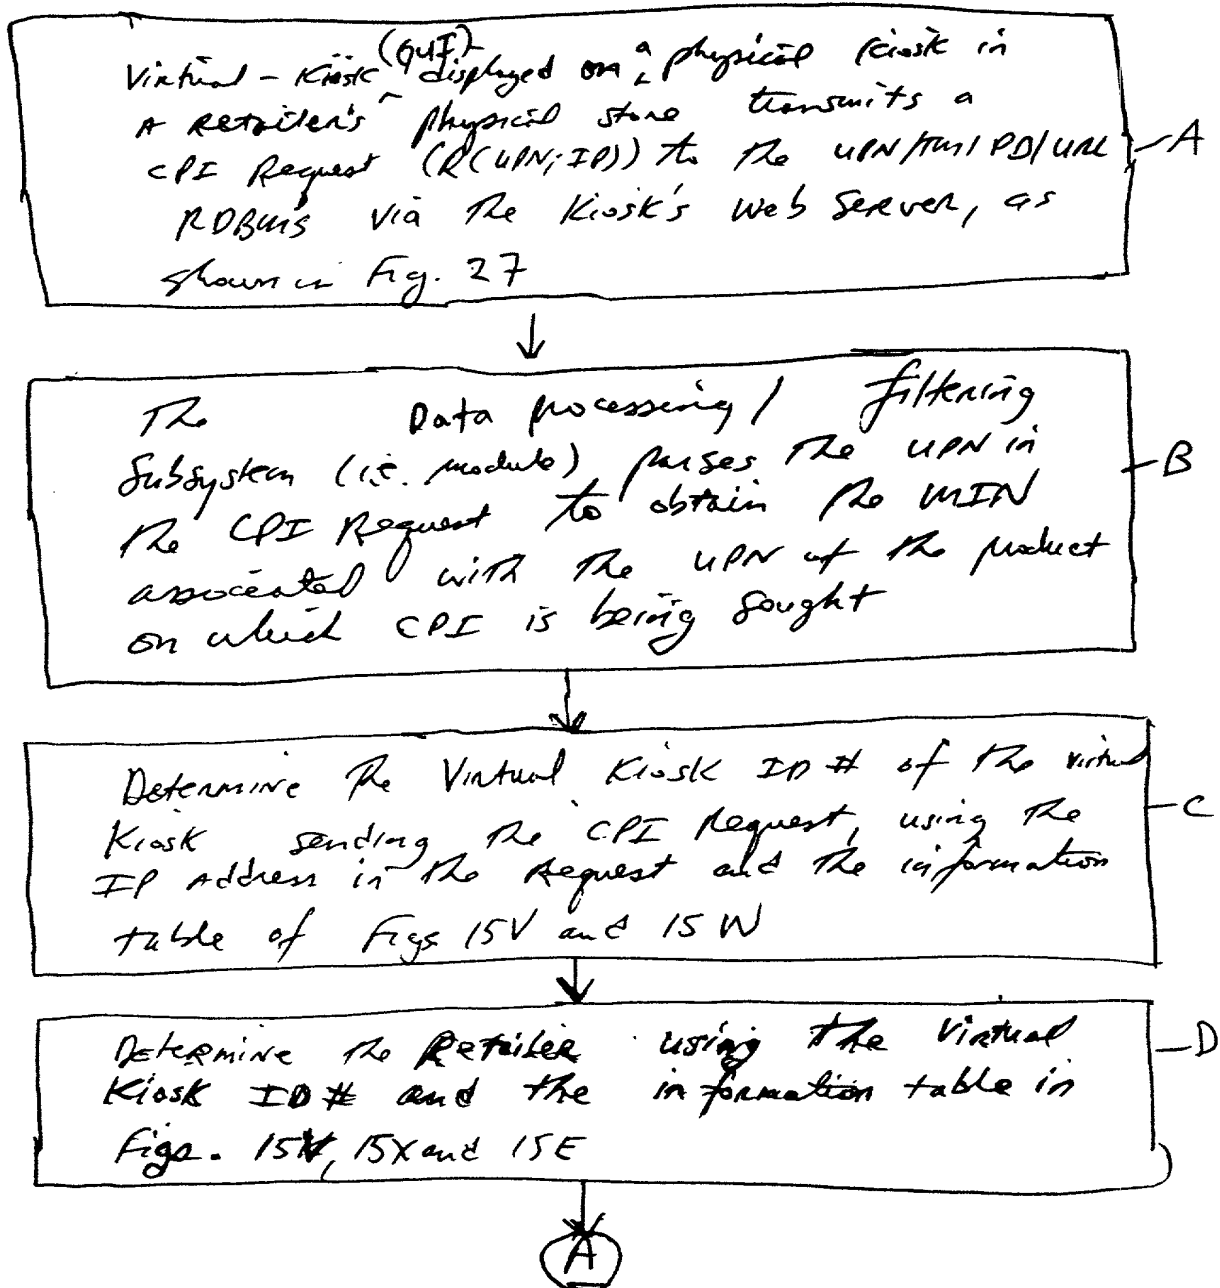 (GUI)
Virtual-Kiosk ^ displayed on ^a physical Kiosk in
A Retailer's physical store transmits a
CPI Request (R(UPN;IP)) to the UPN/TM/PD/URL
RDBMS via the Kiosk's Web Server, as
shown in Fig. 27
A
The Data processing/ filtering
Subsystem (i.e. module) parses the UPN in
the CPI Request to obtain the MIN
associated with the UPN of the product
on which CPI is being sought
B
Determine the Virtual Kiosk ID # of the virtual
Kiosk sending the CPI Request, using the
IP Address in the Request and the information
table of Figs 15V and 15W
C
Determine the Retailer using the Virtual
Kiosk ID # and the information table in
Figs. , 15X and 15E
D
A